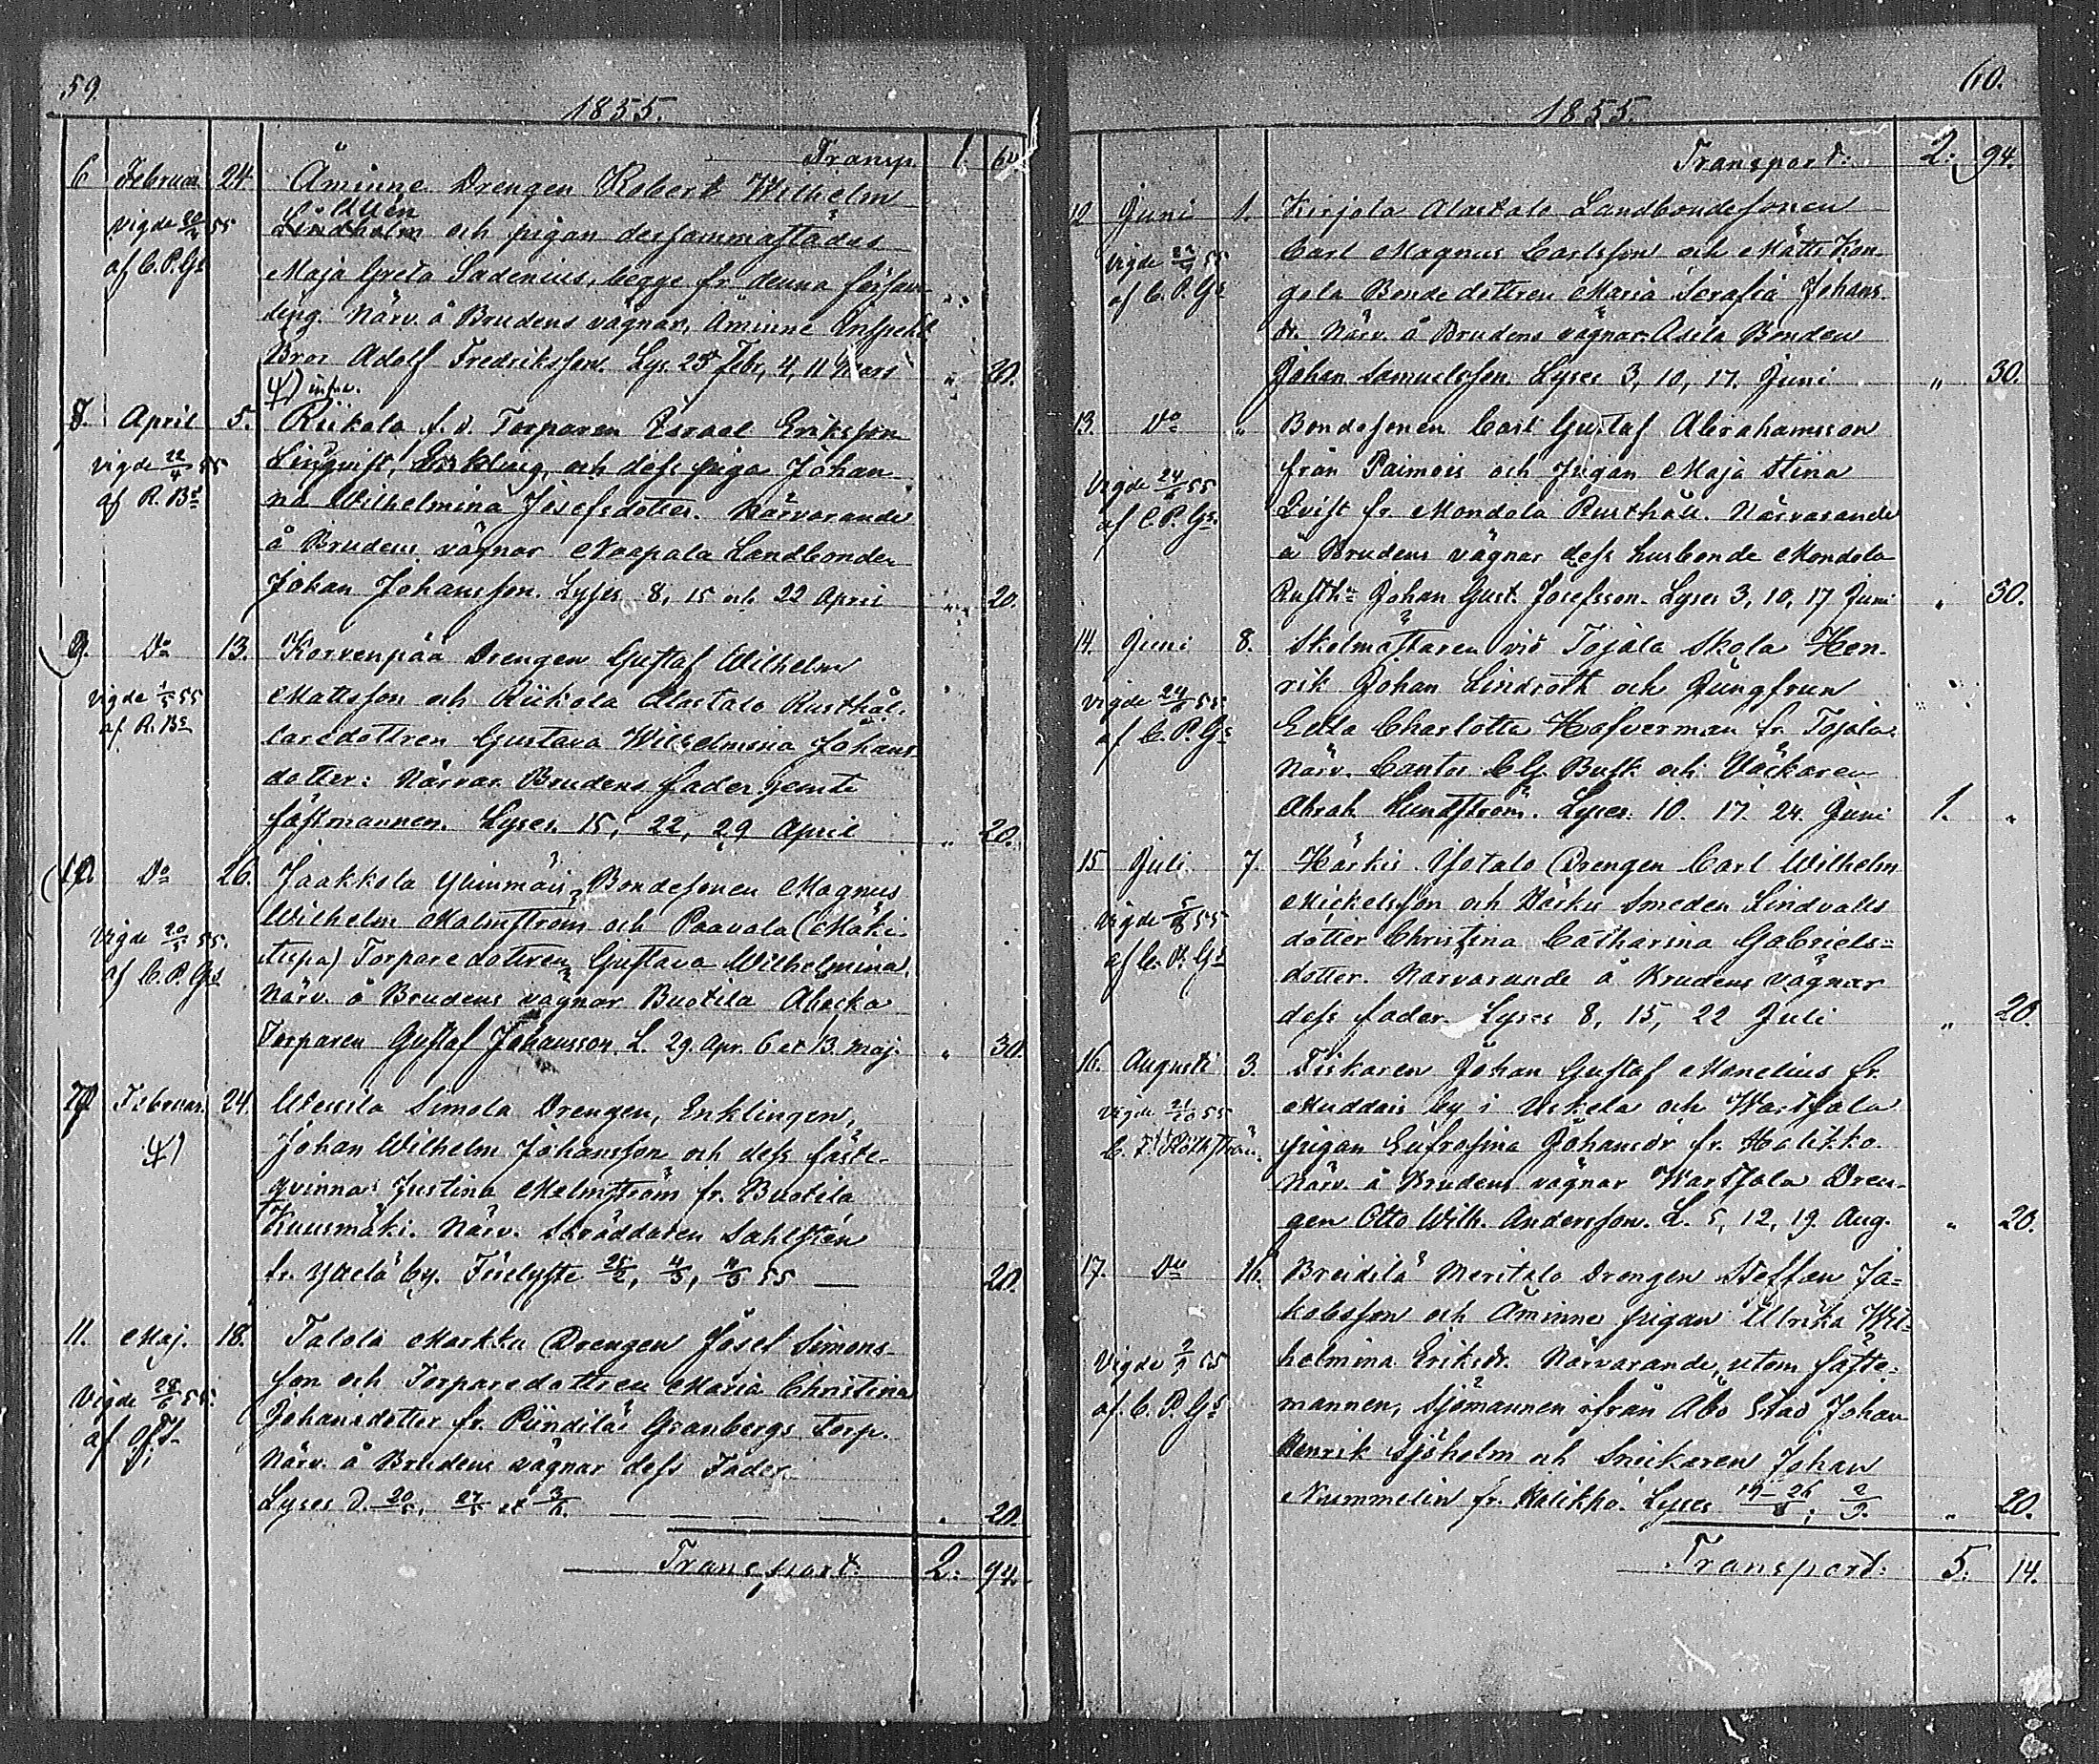 59.
1855.
Transp. 1. 60.
6 Februar. 24. Åminne Drengen Robert Wilhelm
Löthén
Vigde 20/4 55 Lindholm och pigan dersammastädes
af C. P. Gs Maja Greta Sadenius, begge fr. denna försam-
ling. Närv. å Brudens vägnar, Åminne Inspekt.
Bror Adolf Fredriksson. Lys. 25 Febr, 4, 11 Mars " 20.
ψ) infra.
8. April 5. Riikola f. d. Torparen Israel Eriksson
Vigde 22/4 55 Linqvist, Enkling, och dess piga Johan-
af R. Bs na Wilhelmina Josefsdotter. Närvarande
å Brudens vägnar Naapala Landbonden
Johan Johansson. Lyses 8, 15 och 22 April " 20.
9. Do 13. Korvenpää Drengen Gustaf Wilhelm
Vigde 1/5 55 Mattsson och Riikola Alastalo Rusthål-
af R. Bs laredottren Gustava Wilhelmina Johans-
dotter: Närvar. Brudens fader jemte
fästmannen. Lyses. 15, 22, 29 April " 20.
10. Do 26. Jaakkola Ylinmäis Bondesonen Magnus
Wilhelm Malmström och Paavola (Mäki-
Vigde 20/5 55. tupa) Torparedottren Gustava Wilhelmina.
af C. P. Gs Närv. å Brudens vägnar Buotila Abacka
Torparen Gustaf Johansson. L. 29. Apr. 6 et 13. Maj. " 30.
7. Februar. 24. Simola Drengen, Enklingen,
ψ) Johan Wilhelm Johansson och dess fäste-
qvinna Justina Malmström fr. Buotila
Kuusmäki. Närv. Skräddaren Sahlstén
fr. by. 25/2, 4/3, 11/3 55 — 20.
11. Maj. 18. Talola Markku Drengen Josef Simons-
Vigde 28/6 55. son och Torparedottren Maria Christina
af Johansdotter fr. Pöndilä Granbergs torp.
Närv. å Brudens vägnar dess Fader.
Lyses d. 20/5, 27/5 et 3/6. " 20.
Transport: 2. 94.
60.
1855.
Transport: 2. 94.
12 Juni 1. Kirjola Alastalo Landbondesonen
Vigde 55 Carl Magnus Carlsson och Mätts Kon-
af C. P. Gs gola Bondedottren Maria Serafia Johans-
dr. Närv. å Brudens vägnar Asila Bonden
Johan Samuelsson. Lyses 3, 10, 17. Juni " 30.
13. Do " Bondesonen Carl Gustaf Abrahamsson
från Paimois och pigan Maja Stina
Vigde 24/6 55 Qvist fr. Mondola Rusthåll. Närvarande
af C. P. Gs. å Brudens vägnar dess husbonde Mondola
Rusth: Johan Gust. Josefsson. Lyses 3, 10, 17 Juni " 30.
14. Juni 8. Skolmästaren vid Tojala Skola Hen-
Vigde 24/6 55 rik Johan Lindroth och Jungfrun
af C. P. Gs Edla Charlotta Hofverman fr. Tojala.
Närv. Cantor Busk och Väckaren
Abrah. Lundström. Lyses: 10. 17. 24. Juni 1. "
15 Juli 7. Härkis Yotalo Drengen Carl Wilhelm
Vigde 5/8 55 Mickelsson och Härkis Smeden Lindvalls
af C. P. Gs dotter Christina Catharina Gabriels=
dotter. Närvarande å Brudens vägnar
dess fader. Lyses 8, 15, 22 Juli " 20.
16. Augusti 3. Fiskaren Johan Gustaf Monelius fr.
Vigde 21/10 55 Muddais by i Uskela och Wartsala
pigan Eufrosina Johansdr fr. Halikko.
Närv. å Brudens vägnar Wartsala Dren-
gen Otto Wilh. Andersson. L. 5, 12, 19. Aug. " 20.
17. Do 16. Breidilä Meritalo Drengen Steffan Ja=
kobsson och Åminne pigan Ulrika Wil=
Vigde 55 helmina Eriksdr. Närvarande, utom fäste-
af C. P. Gs mannen, Sjömannen ifrån Åbo Stad Johan
Henrik Sjöholm och Snickaren Johan
Nummelin fr. Halikko. Lyses 19–26/8; 2/9. " 20.
Transport: 5. 14.